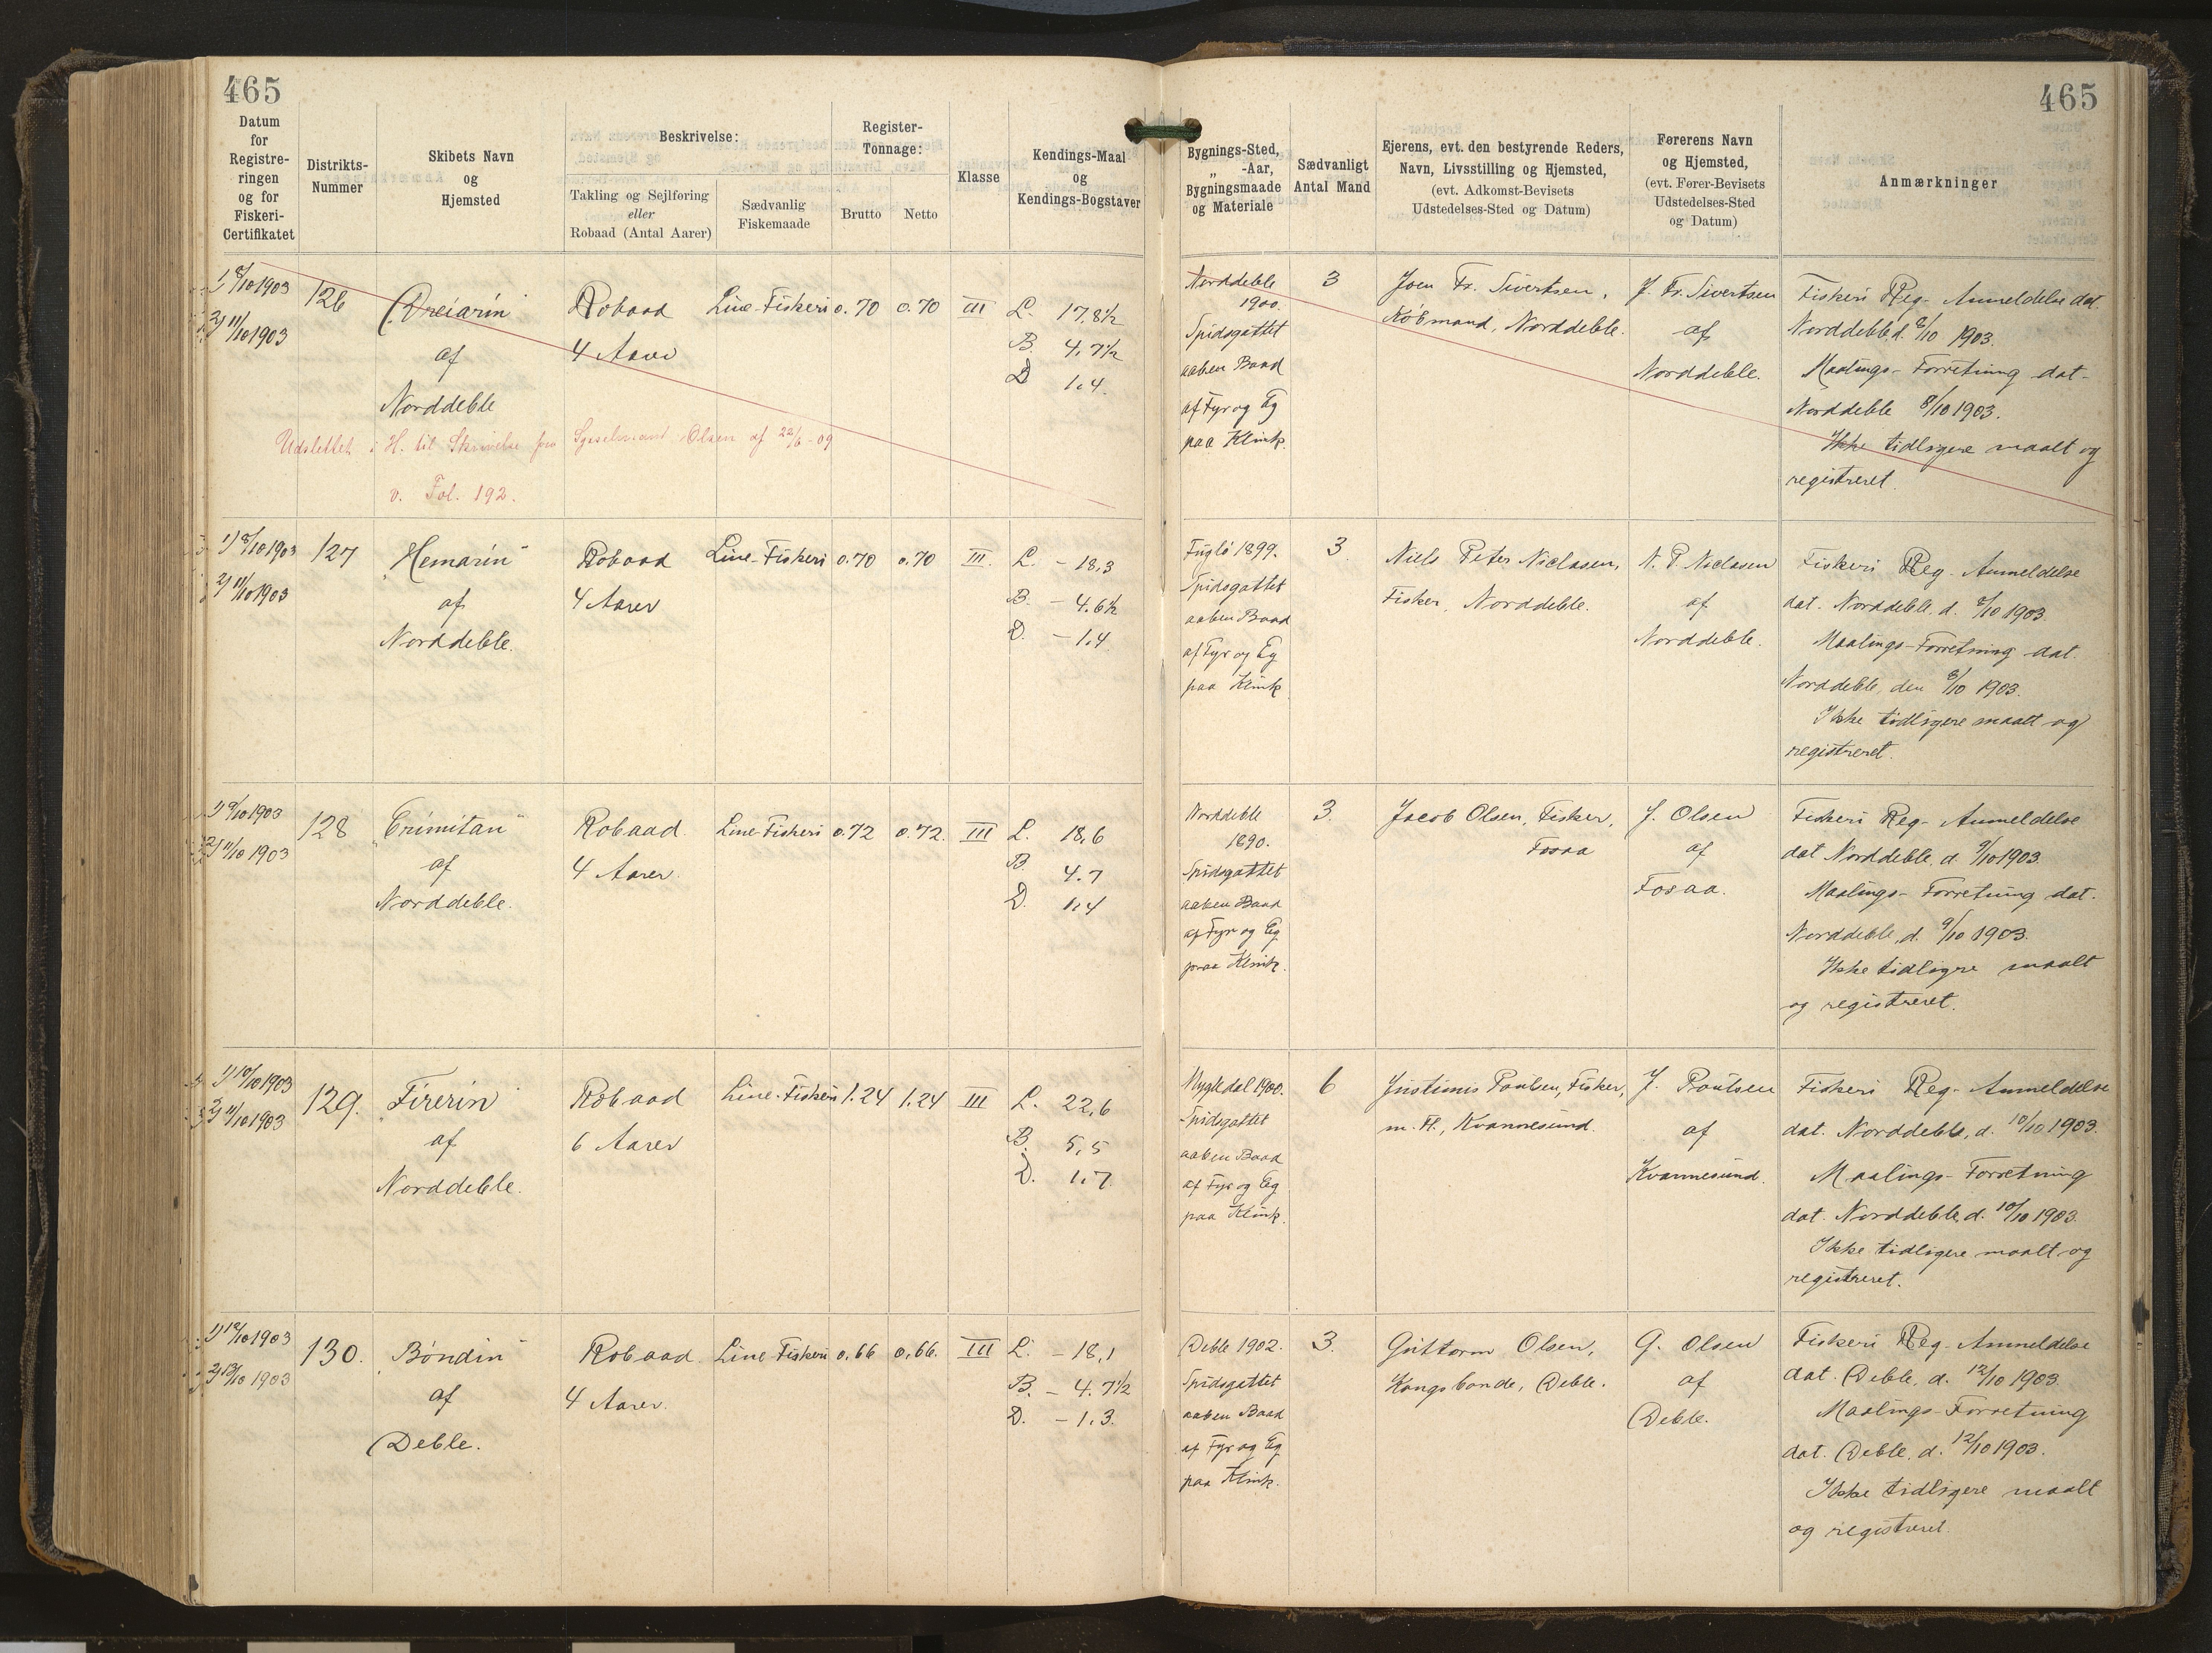 465
465
Datum for Registreringen og for Fiskeri-Certifikatet
Distrikts-Nummer
Skibets Navn og Hjemsted
Beskrivelse:
Takling og Sejlføring eller Robaad (Antal Aarer)
Sædvanlig Fiskemaade
Register-Tonnage:
Brutto
Netto
Klasse
Kendings-Maal og Kendings-Bogstaver
Bygnings-Sted, „ -Aar, Bygningsmaade og Materiale
Sædvanligt Antal Mand
Ejerens, evt. den bestyrende Reders, Navn, Livsstilling og Hjemsted, (evt. Adkomst-Bevisets Udstedelses-Sted og Datum)
Førerens Navn og Hjemsted, (evt. Fører-Bevisets Udstedelses-Sted og Datum)
Anmærkninger
1) 8/10 1903
2) 11/10 1903
126
af
Norddeble
Robaad
4 Aarer
Line-Fiskeri
0.70
0.70
III
L. 17,8½
B. 4,7½
D 1,4
Norddeble
1900.
Spidsgattet
aaben Baad
af Fyr og Eg
paa Klink.
3
Joen Fr. Sivertsen,
Købmand, Norddeble.
J. Fr. Sivertsen
af
Norddeble.
Fiskeri Reg- Anmeldelse dat.
Norddeble d. 8/10 1903.
Maalings-Forretning dat-
Norddeble 8/10 1903.
Ikke tidligere maalt og
registreret.
Udslettet i H. til Skrivelse fra Sysselmand Olsen af 22/6-09
v. Fol. 192.
1) 8/10 1903
2) 11/10 1903
127
„Hemarin"
af
Norddeble.
Robaad
4 Aarer
Line-Fiskeri
0.70
0.70
III.
L. - 18,3
B. - 4.6½
D. - 1,4
Fuglø 1899.
Spidsgattet
aaben Baad
af Fyr og Eg
paa Klink
3.
Niels Peter Niclasen,
Fisker, Norddeble.
N. P. Niclasen
af
Norddeble.
Fiskeri Reg- Anmeldelse
dat. Norddeble, d. 8/10 1903.
Maalings-Forretning dat.
Norddeble, den 8/10 1903.
Ikke tidligere maalt og
registreret.
1) 9/10 1903
2) 11/10 1903
128
„Trimitan"
af
Norddeble.
Robaad.
4 Aarer.
Line-Fiskeri
0.72
0.72.
III
L. 18,6
B. 4.7
D. 1,4
Norddeble
1890.
Spidsgattet
aaben Baad
af Fyr og Eg
paa Klink.
3.
Jacob Olsen, Fisker,
Fosaa
J. Olsen
af
Fosaa.
Fiskeri Reg- Anmeldelse
dat Norddeble, d. 9/10 1903.
Maalings-Forretning dat.
Norddeble, d. 9/10 1903.
Ikke tidligre maalt
og registreret.
1) 10/10 1903
2) 11/10 1903
129.
„Firerin"
af
Norddeble.
Robaad
6 Aarer
Line-Fiskeri
1.24
1.24
III
L. 22,6
B. 5,5
D. 1,7
Mygledal 1900.
Spidsgattet
aaben Baad
af Fyr og Eg
paa Klink.
6
Justinus Poulsen, Fisker,
m. Fl., Kvannesund.
J. Poulsen
af
Kvannesund.
Fiskeri Reg- Anmeldelse
dat. Norddeble, d. 10/10 1903.
Maalings-Forretning
dat. Norddeble, d. 10/10 1903.
Ikke tidligere maalt og
registreret.
1) 12/10 1903
2) 13/10 1903
130.
„Bóndin"
af
Deble.
Robaad.
4 Aarer.
Line-Fiskeri
0.66
0.66.
III
L. - 18,1
B. - 4.7½
D. - 1.3.
Deble 1902.
Spidsgattet
aaben Baad
af Fyr og Eg
paa Klink.
3.
Guttorm Olsen,
Kongsbonde, Deble.
G. Olsen
af
Deble.
Fiskeri Reg- Anmeldelse
dat. Deble, d. 12/10 1903.
Maalings-Forretning
dat. Deble, d. 12/10 1903.
Ikke tidligere maalt
og registreret.